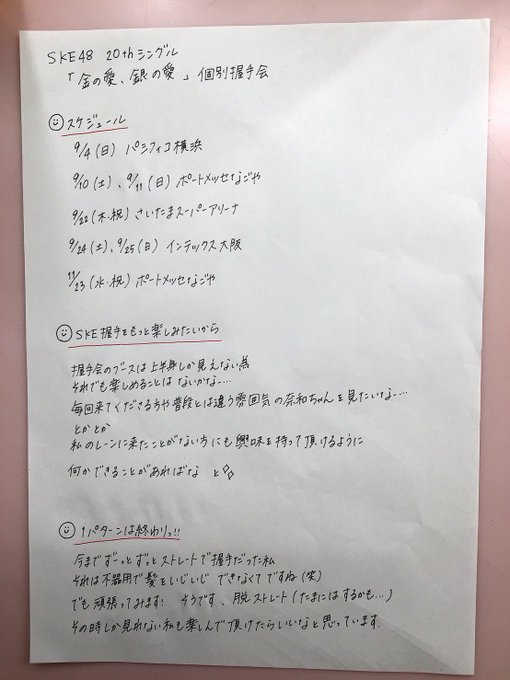 SKE48 20thシングル
「金の愛、銀の愛」個別握手会
スケジュール
9/4(日) パシフィコ横浜
9/10(土)、9/11(日) ポートメッセなごや
9/22(木・祝) さいたまスーパーアリーナ
9/24(土)、9/25(日) インテックス大阪
11/23(水・祝) ポートメッセなごや
SKE握手をもっと楽しみたいから
握手会のブースは上半身しか見えない為
それでも楽しめることはないかな……
毎回来てくださる方や普段とは違う雰囲気の奈和ちゃんを見たいな……
とかとか
私のレーンに来たことがない方にも興味を持って頂けるように
何かできることがあればな と
1パターンは終わりっ!!
今までずーっとずっとストレートで握手だった私
それは不器用で髪をいじいじできなくてですね(笑)
でも頑張ってみます! そうです、脱ストレート(たまにはするかも…)
その時しか見れない私も楽しんで頂けたらいいなと思っています.